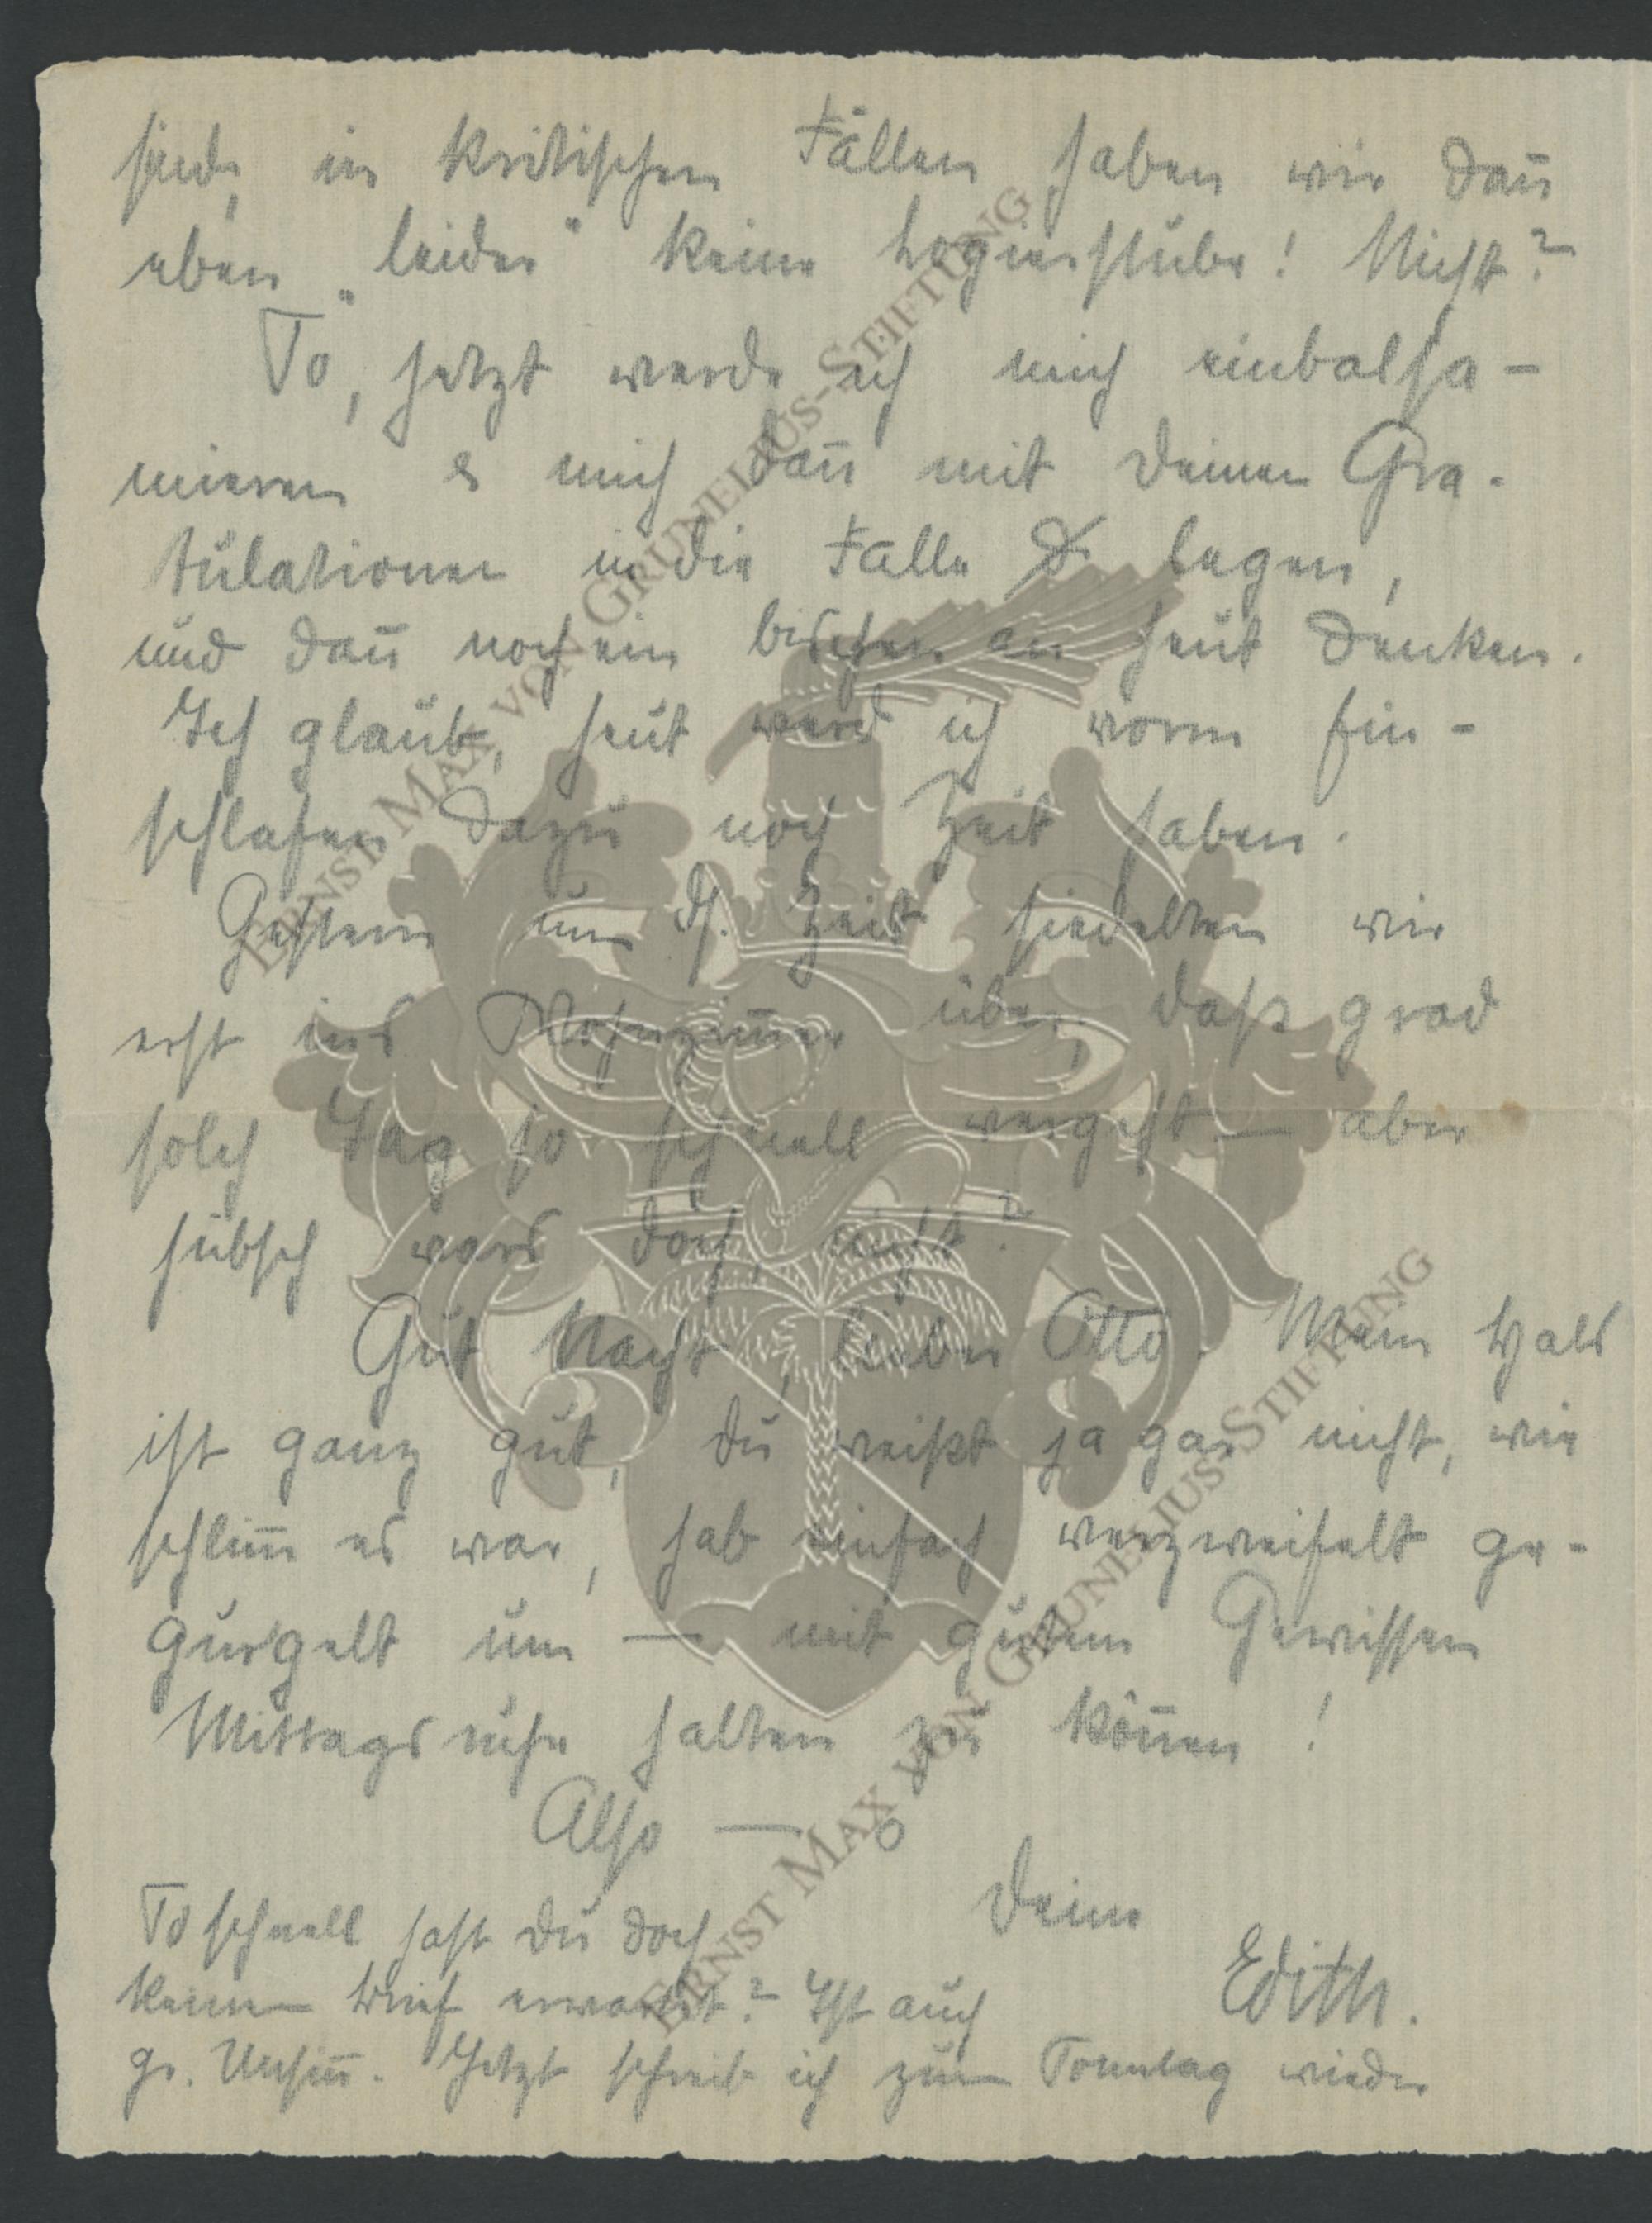 sind, in kritischen Fällen haben wir dañ
eben „leider" keine Logierstube! Nicht?
So, jetzt werde ich mich einbalsa-
mieren & mich dañ mit deinen Gra-
tulationen in die Falle legen,
und dañ noch ein bischen an heut denken.
Ich glaub, heut werd ich vorm Ein-
schlafen dazu noch Zeit haben.
Gestern um d. Zeit siedelten wir
erst ins über, daß grad
solch Tag so schnell vergeht — aber
hübsch wars doch, nicht?
Gut Nacht, lieber Otto. Mein Hals
ist ganz gut, du weißt ja gar nicht, wie
schlim̄ es war, hab einfach verzweifelt ge-
gurgelt um — mit gutem Gewissen
Mittagsruhe halten zu köñen!
Also —
Deine
Edith.
So schnell hast du doch
keinen Brief erwartet? Ist auch
gr. Unsiñ. Jetzt schreib ich zum Sonntag wieder
ERNST MAX VON GRUNELIUS-STIFTUNG
ERNST MAX VON GRUNELIUS-STIFTUNG